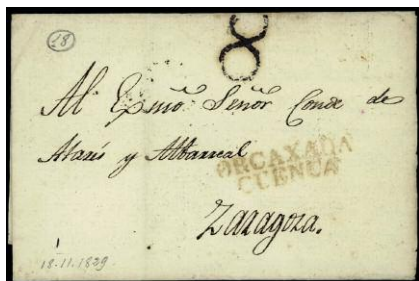 18
8
Al Exmo Señor Conde de
Atarés y Albarreal
ORCAXADA
CUENCA
Zaragoza.
18-11-1829